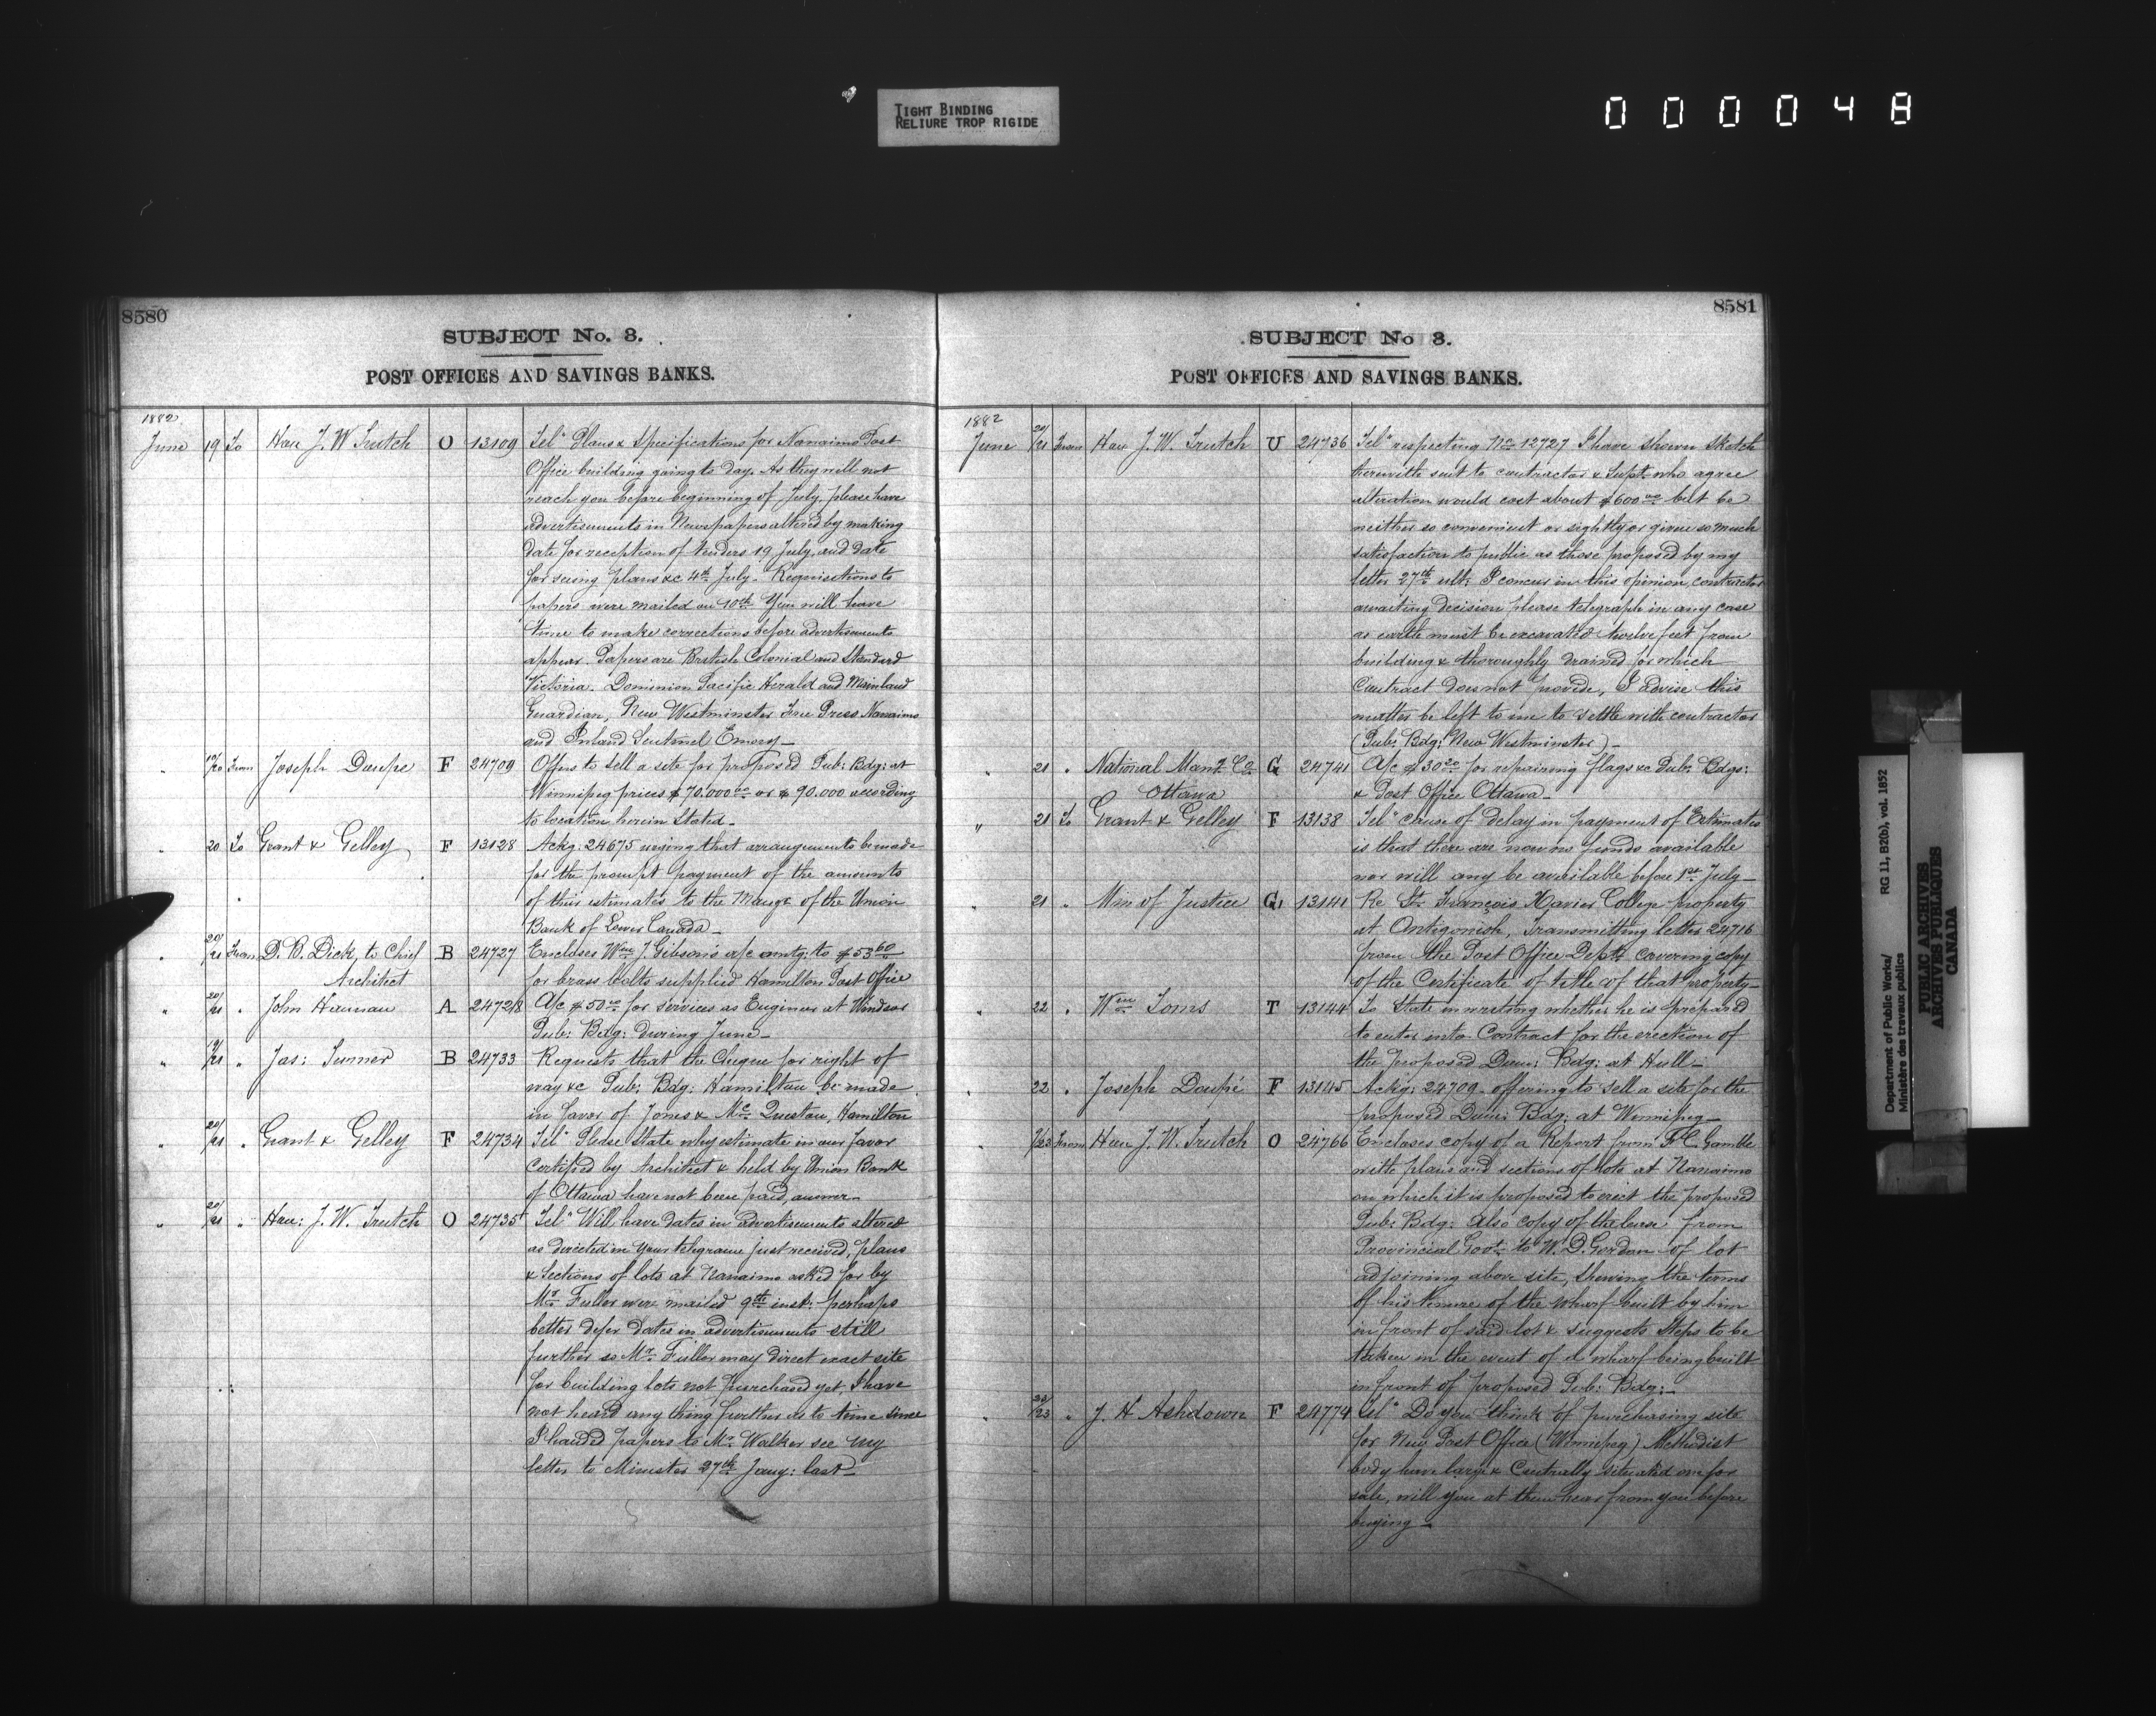 TIGHT BINDING
RELIURE TROP RIGIDE
000048
8580
SUBJECT No. 3.
POST OFFICES AND SAVINGS BANKS.
1882
June 19 To Hon J. W Trutch O 13109 Telm Plans & Specifications for Nanaimo Post
Office building going to day. As they will not
reach you before beginning of July, please have
advertisements in Newspapers altered by making
date for reception of tenders 19 July, and date
for seeing plans &c 4th July. Requisitions to
papers were mailed on 10th You will have
time to make corrections before advertisements
appear. Papers are British Colonial and Standard
Victoria. Dominion Pacific Herald and Mainland
Guardian, New Westminster Free Press Nanaimo
and Inland Sentinel Emory_
" 19/20 From Joseph Doupe F 24709 Offers to sell a site for proposed Pub: Bdg: at
Winnipeg prices $70.000 00 or $90.000 according
to location herein stated_
" 20 To Grant & Gelley F 13128 Ackg: 24675 urging that arrangements be made
for the prompt payment of the amounts
of their estimates to the Mangr of the Union
Bank of Lower Canada_
" 20/21 From D. B. Dick, to Chief B 24727 Encloses Wm J. Gibson's a/c amtg: to $53 60
Architect for brass bolts supplied Hamilton Post Office
" 20/21 " John Hannan A 24728 A/c $50 00 for services as Engineer at Windsor
Pub: Bdg: during June_
" 19/21 " Jas: Turner B 24733 Requests that the Cheque for right of
way &c Pub: Bdg: Hamilton be made
in favor of Jones & Mc Questan, Hamilton
" 20/21 " Grant & Gelley F 24734 Telm Please state why estimate in our favor
certified by Architect & held by Union Bank
of Ottawa have not been paid, answer_
" 20/21 " Hon: J. W. Trutch O 24735 Telm Will have dates in advertisements altered
as directed in your telegram just received, plans
& sections of lots at Nanaimo asked for by
Mr Fuller were mailed 9th inst: perhaps
better defer dates in advertisements still
further so Mr. Fuller may direct exact site
for building lots not purchased yet, I have
not heard any thing further as to time since
I handed papers to Mr Walker see my
letter to Minister 27th Jany: last_
8581
SUBJECT No 3.
POST OFFICES AND SAVINGS BANKS.
1882
June 20/21 From Hon J. W. Trutch U 24736 Telm respecting No 12727 I have shown sketch
therewith sent to contractor & Supt: who agree
alteration would cost about $600 00 but be
neither so convenient or sightly or given so much
satisfaction to public as those proposed by my
letter 27th ult: I concur in this opinion, contractor
awaiting decision please telegraph in any case
as earth must be excavated twelve feet from
building & thoroughly drained for which
Contract does not provide, I advise this
matter be left to me to settle with contractor
(Pub: Bdg: New Westminster)_
" 21 " National Manf. Co G 24741 A/c $30 20 for repairing flags &c Pub: Bdgs:
Ottawa & Post Office Ottawa_
" 21 To Grant & Gelley F 13138 Telm cause of delay in payment of Estimates
is that there are now no funds available
nor will any be available before 1st July_
" 21 " Min of Justice G 13141 Re St. François Xavier College property
at Antigonish, Transmitting letter 24716
from the Post Office Dept: covering copy
of the Certificate of title of that property_
" 22 " Wm Toms T 13144 To State in writing whether he is prepared
to enter into Contract for the erection of
the proposed Dom: Bdg: at Hull_
" 22 " Joseph Doupé F 13145 Ackg: 24709 offering to sell a site for the
proposed Dom: Bdg: at Winnipeg_
" /23 From Hon J. W. Trutch O 24766 Encloses copy of a Report from F. C. Gamble
with plans and sections of lots at Nanaimo
on which it is proposed to erect the proposed
Pub: Bdg: also copy of the lease from
Provincial Govt: to W. D. Gordon of lot
adjoining above site, shewing the terms
of his tenure of the wharf built by him
in front of said lot & suggests steps to be
taken in the event of a wharf being built
in front of proposed Pub: Bdg:_
" 22/23 " J. H Ashdown F 24779 Telm Do you think of purchasing site
for New Post Office (Winnipeg) Methodist
body have large & Centrally situated one for
sale, will you let them hear from you before
buying_
Department of Public Works/ RG 11, B2(b), vol. 1852
Ministère des travaux publics
PUBLIC ARCHIVES
ARCHIVES PUBLIQUES
CANADA